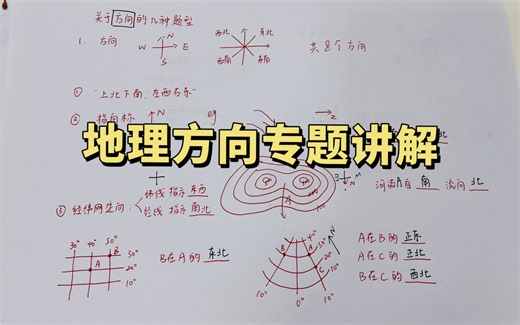 关于方向的几种题型
1. 方向
N
W
E
S
西北
东北
西南
东南
共8个方向
① "上北下南、左西右东"
② 指向标
N
eg
地理方向专题讲解
北
河流A自 南 流向 北
A
③ 经纬网定向
纬线 指示 东西
经线 指示 南北
30° 40° 50°
B
A
30°
20°
10°
B在A的 东北
N
B
A
C
40°
30°
20°
10°
10°
0°
10°
A在B的 正东
A在C的 正北
B在C的 西北